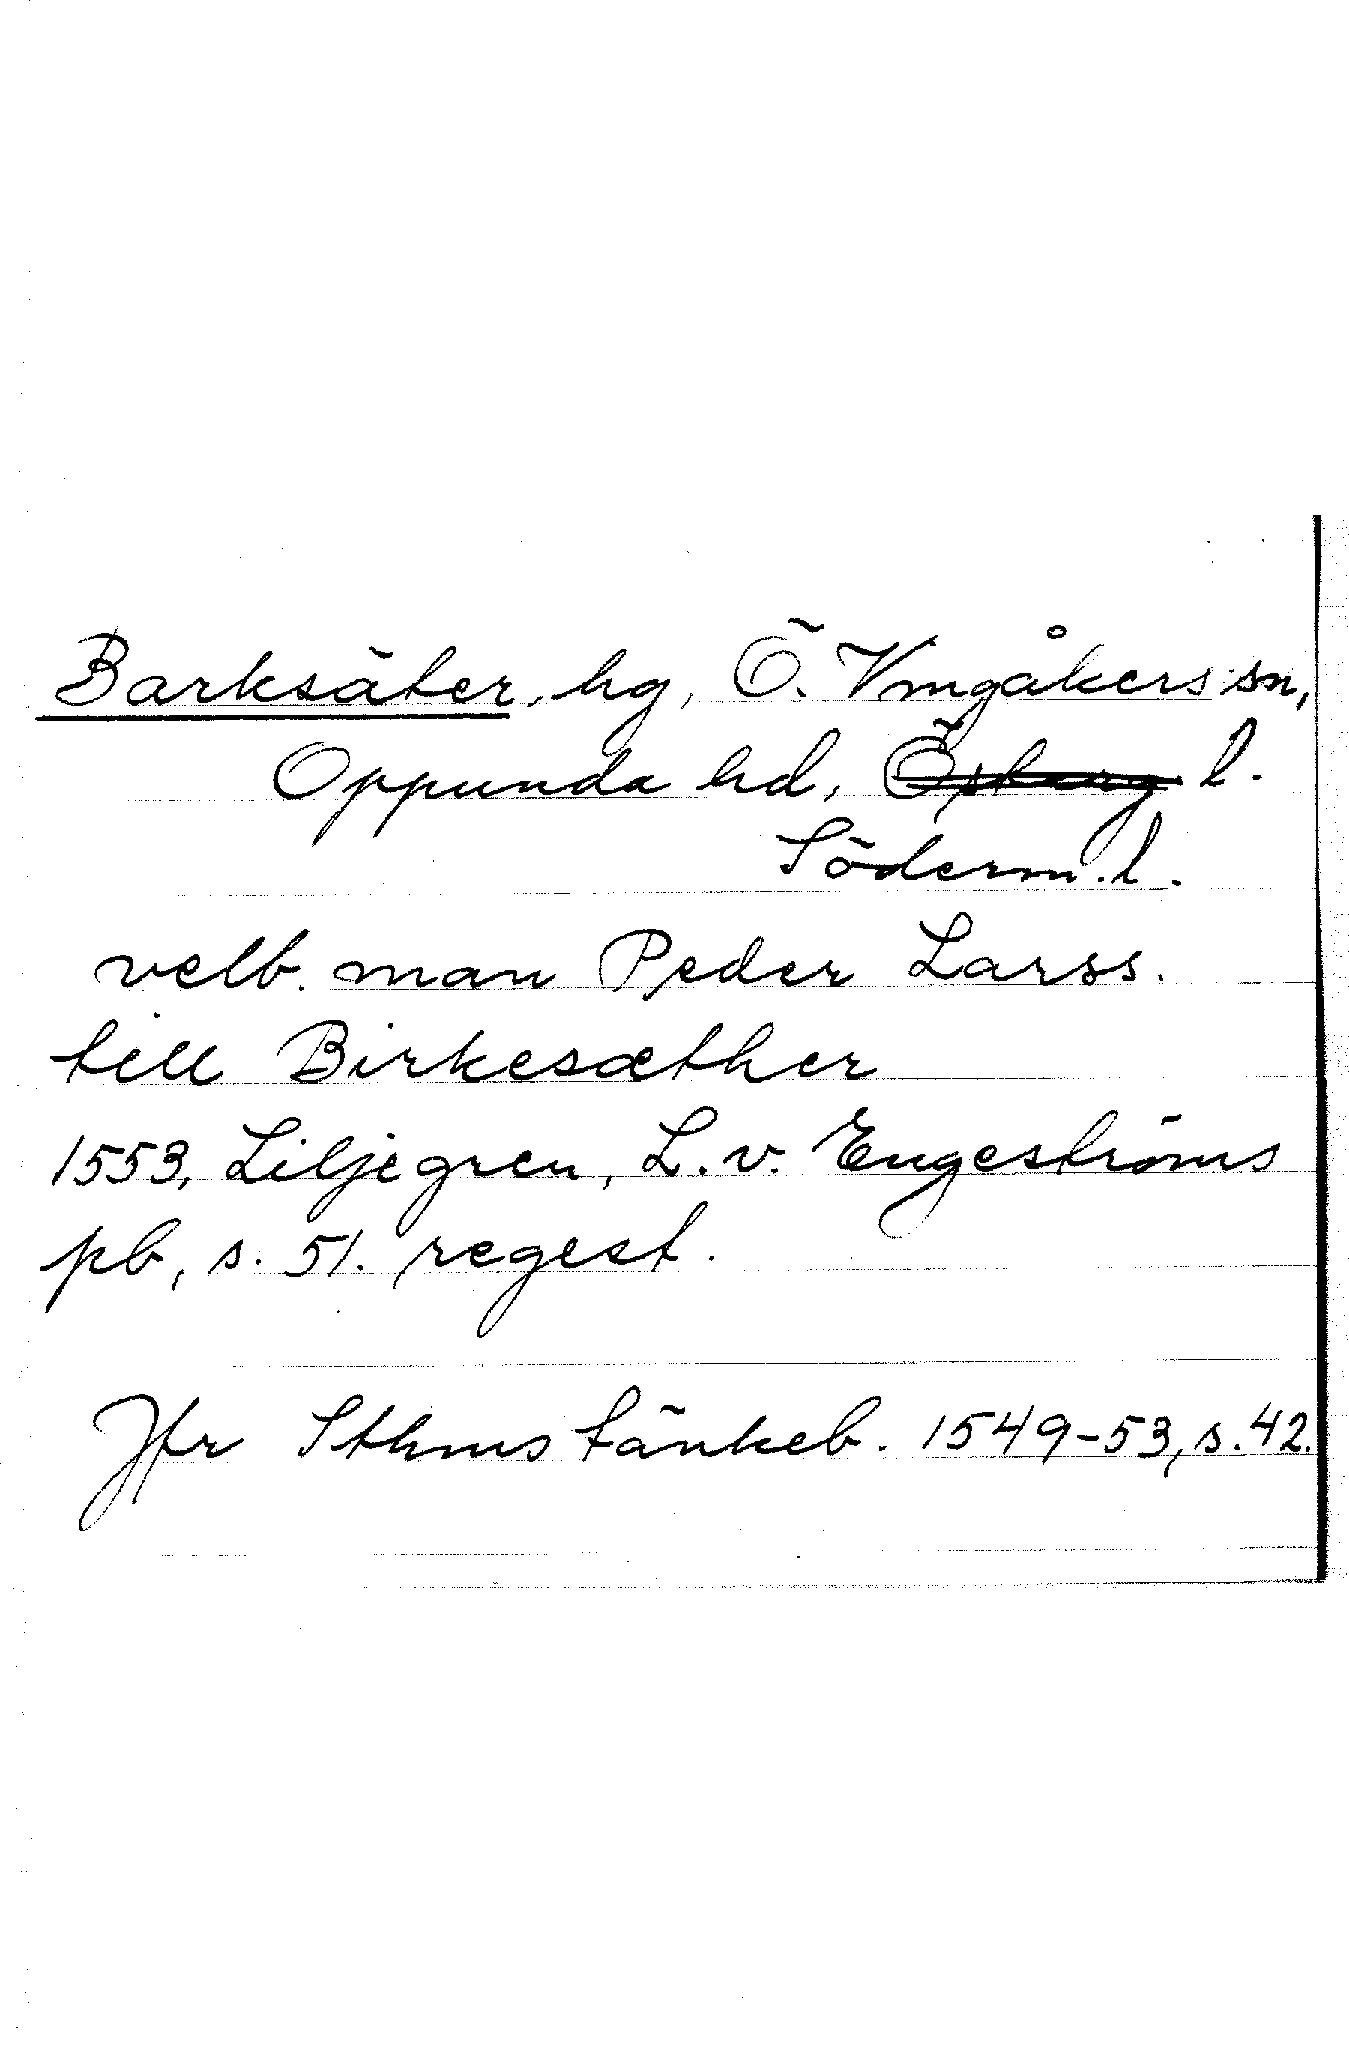 Barksäter, hg, Ö. Vingåkers sn,
Oppunda hd, l.
Söderm. l.
velb. man Peder Larss.
till Birkesæther
1553, Liljegren, L. v. Engeströms
pb, s. 51. regest.
Jfr Sthms tänkeb. 1549-53, s. 42.